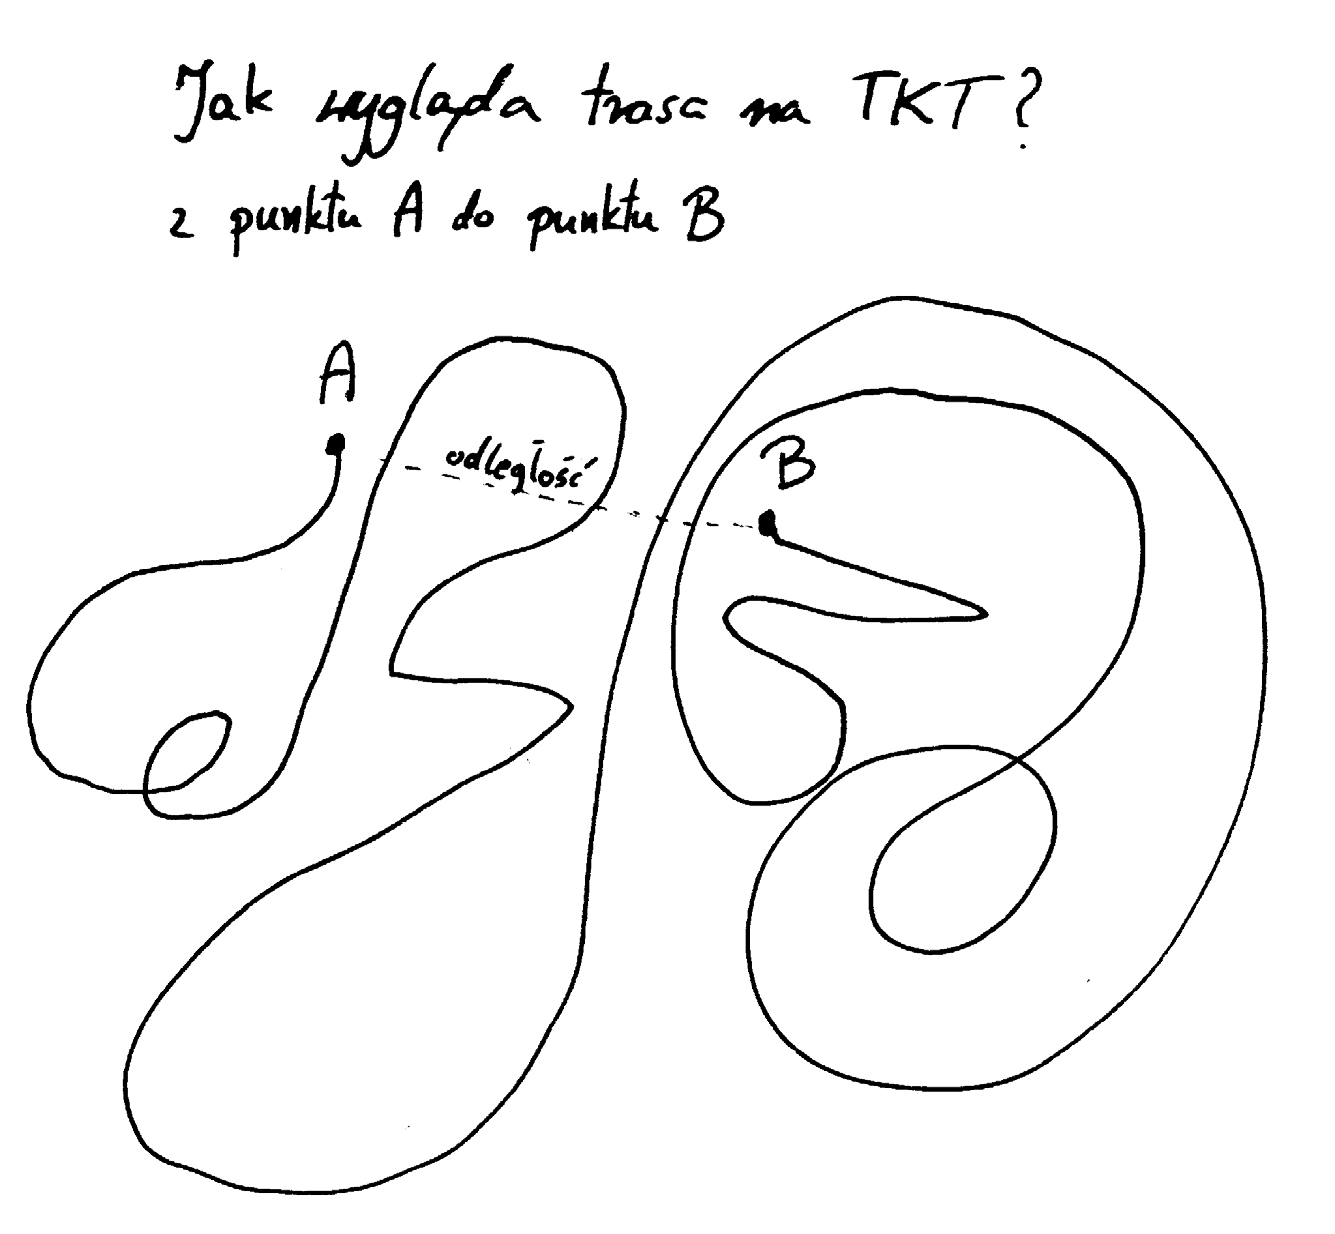 Jak wygląda trasa na TKT?
z punktu A do punktu B
A
odległość
B